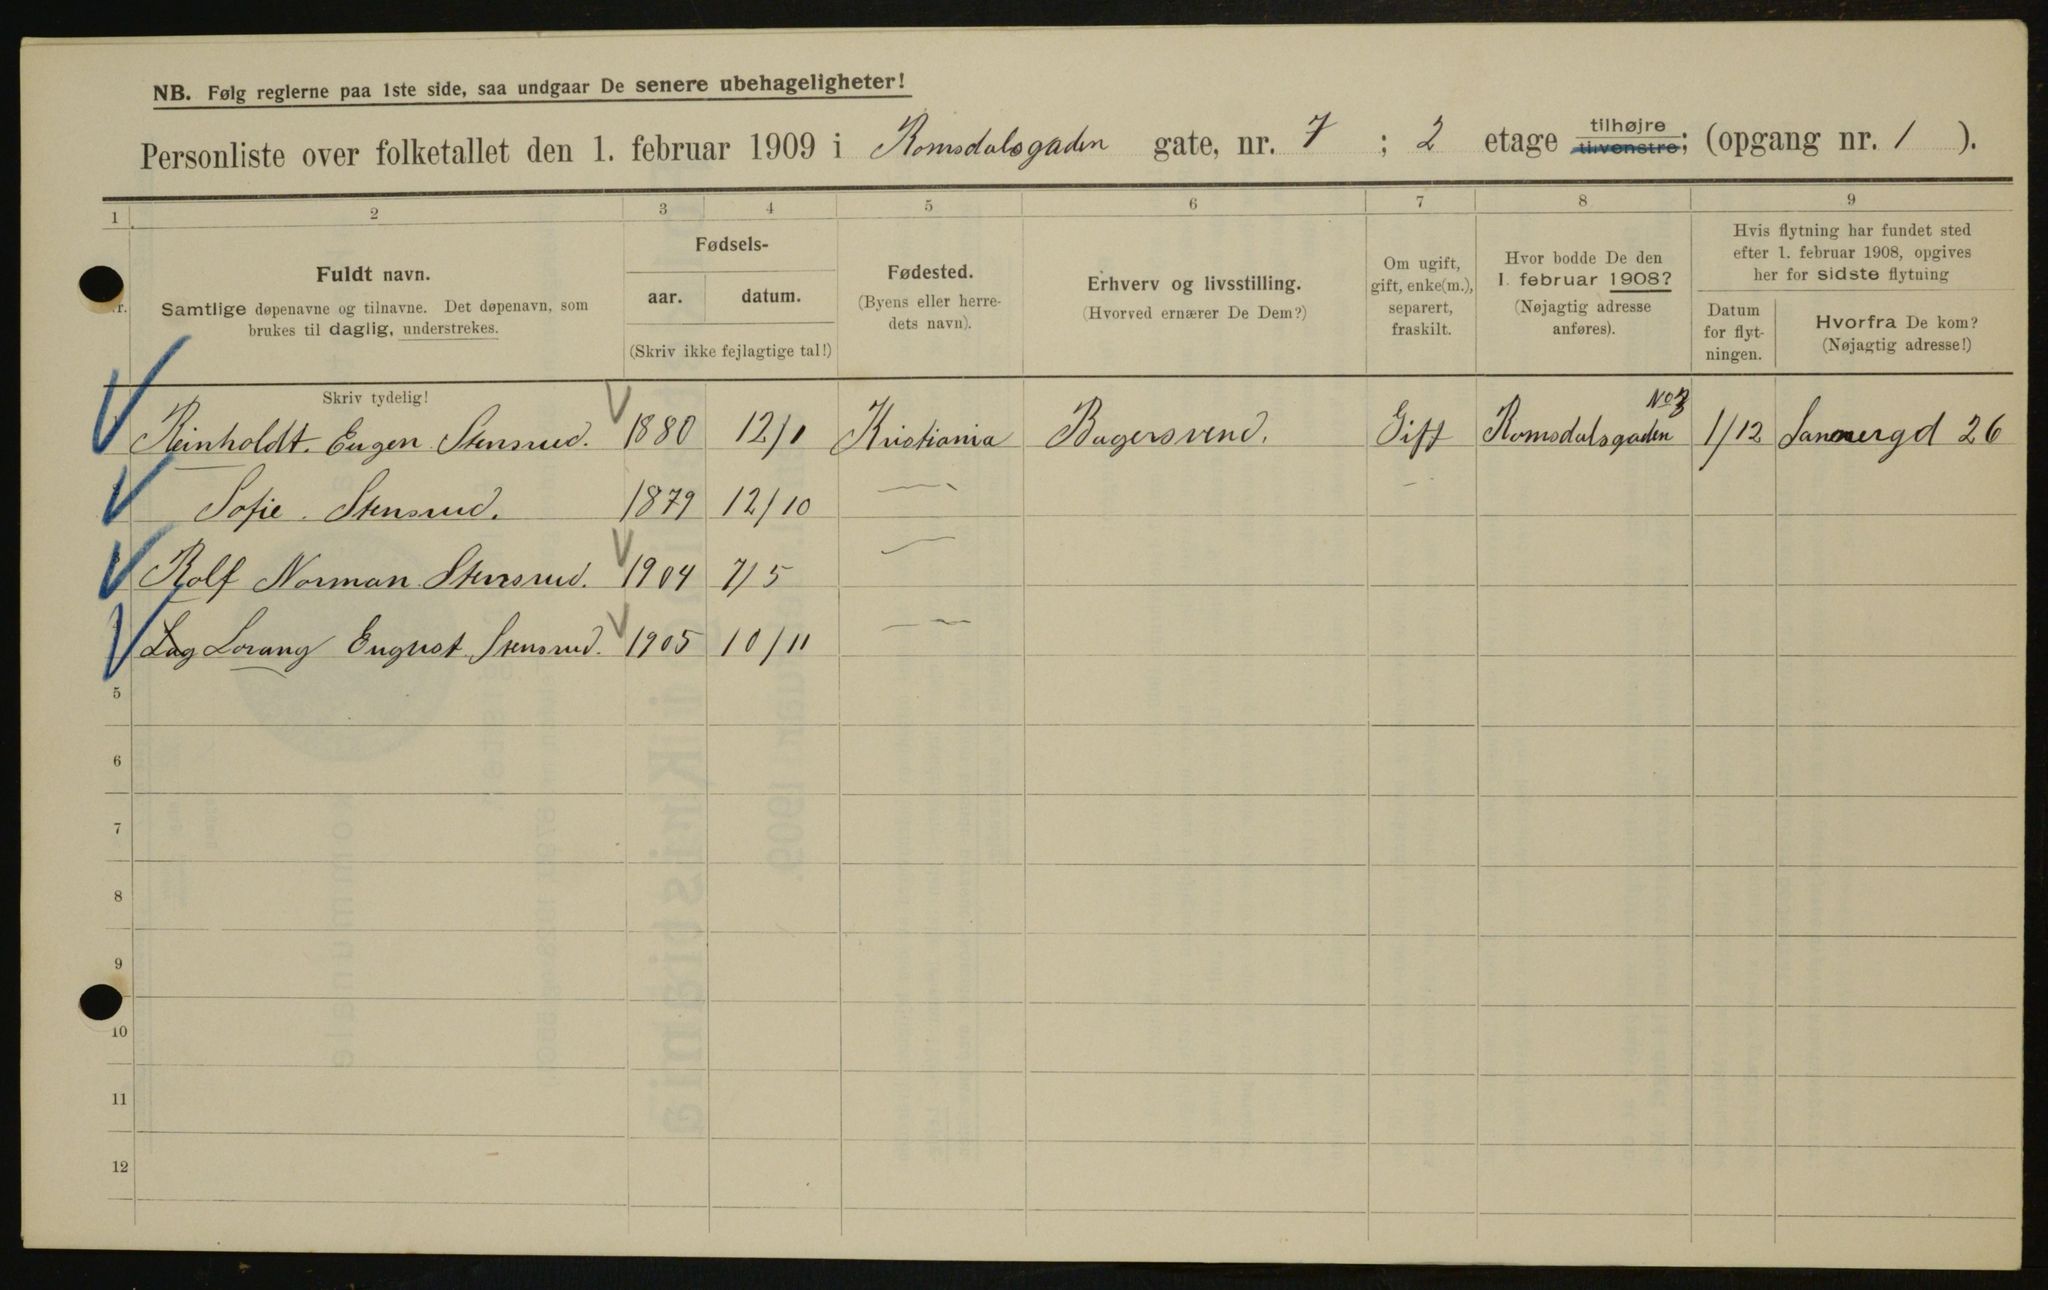 NB. Følg reglerne paa 1ste side, saa undgaar De senere ubehageligheter!
Personliste over folketallet den 1. februar 1909 i Romsdalsgaden gate, nr. 7 ; 2 etage tilhøjre tilvenstre; (opgang nr. 1 ).
1 2 3 4 5 6 7 8 9
Nr.
Fuldt navn.
Samtlige døpenavne og tilnavne. Det døpenavn, som
brukes til daglig, understrekes.
Fødsels-
aar. datum.
(Skriv ikke fejlagtige tal!)
Fødested.
(Byens eller herre-
dets navn).
Erhverv og livsstilling.
(Hvorved ernærer De Dem?)
Om ugift,
gift, enke(m.),
separert,
fraskilt.
Hvor bodde De den
1. februar 1908?
(Nøjagtig adresse
anføres).
Hvis flytning har fundet sted
efter 1. februar 1908, opgives
her for sidste flytning
Datum
for flyt-
ningen.
Hvorfra De kom?
(Nøjagtig adresse!)
Skriv tydelig!
No 3
Reinholdt. Eugen Stensrud. 1880 12/1 Kristiania Bagersvend. Gift Romsdalsgaden 1/12 Sannergd 26
Sofie. Stensrud. 1879 12/10 — —
Rolf Norman Stensrud. 1904 7/5 —
Lag Lorang Eugust Stensrud. 1905 10/11 —
5
6
7
8
9
10
11
12